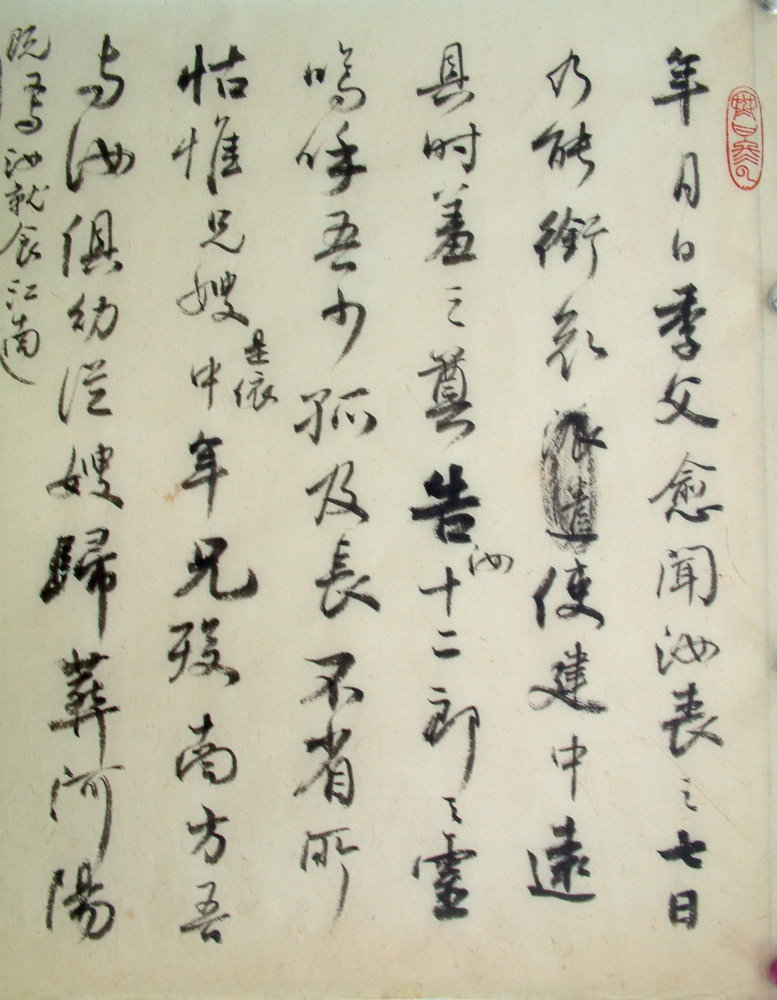 年月日季父愈聞汝喪之七日
乃能銜哀使建中遠
具時羞之奠告汝十二郎之靈
嗚呼吾少孤及長不省所
怙惟兄嫂是依中年兄歿南方吾
與汝俱幼從嫂歸葬河陽
既又與汝就食江南